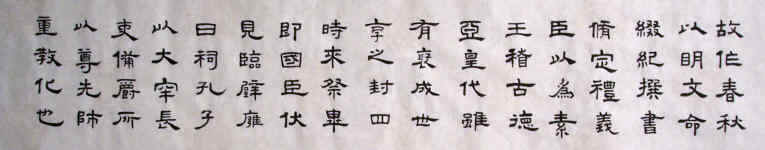 故作春秋
以明文命
綴紀撰書
脩定禮義
臣以為素
王稽古德
亞皇代雖
有褒成世
享之封四
時來祭畢
即國臣伏
見臨辟雍
日祠孔子
以大宰長
吏備爵所
以尊先師
重教化也